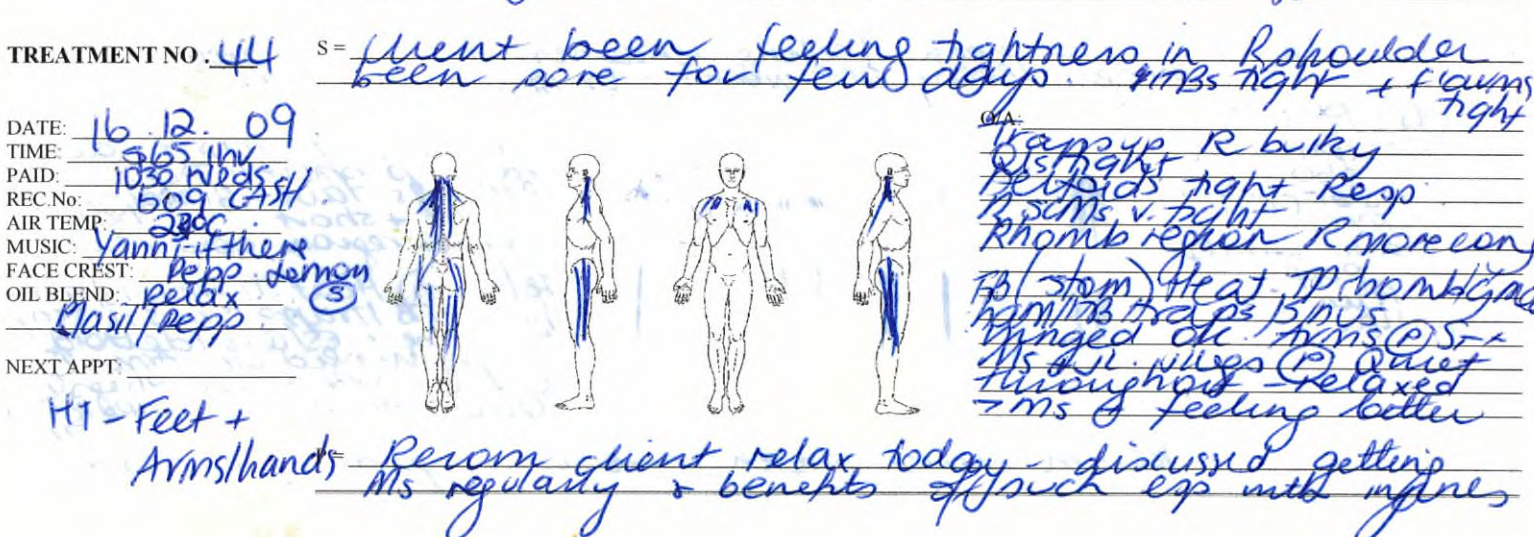 TREATMENT NO. 44
S = Client been feeling tightness in R shoulder
been sore for few days. ITBs tight + f'arms
tight
DATE: 16.12.09
TIME: 565 inv
PAID: 1030 Weds
REC.No: 609 CASH
AIR TEMP:
MUSIC: Yanni-if there
FACE CREST: Pepp. Lemon
OIL BLEND: Relax (S)
Basil/Pepp
NEXT APPT:
HT - Feet +
Arms/hands
O/A:
Traps up R bulky
QLs tight
Deltoids tight Resp
R SCMs v. tight
Rhomb region R more cong
FB (stom) Heat TP rhomb/Gmed
ham/ITB traps
ok. Arms (P) S++
Ms (P) Quiet
throughout - relaxed
7 Ms feeling better
P= Recom client relax today - discussed getting
Ms regularly & benefits of such esp with injuries